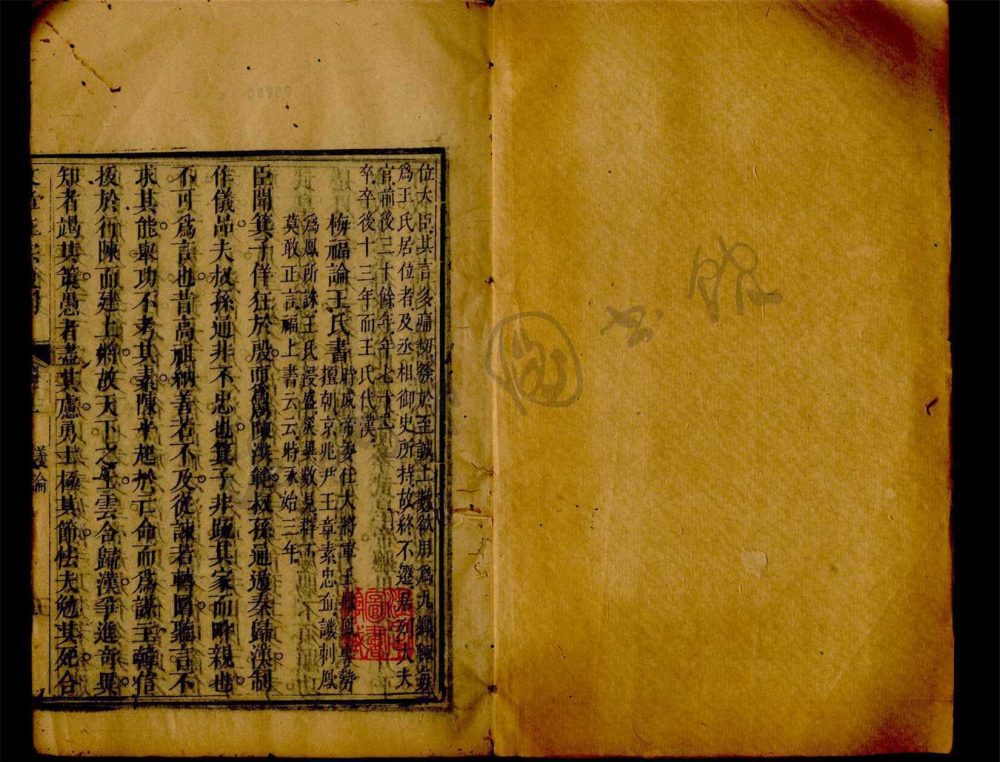 位大臣其言多痛切發於至誠上數欲用為九卿輒
為王氏居位者及丞相御史所持故終不遷居列大夫
官前後三十餘年年七十二
卒卒後十三年而王氏代漢
梅福論王氏書
時成帝委任大將軍王鳳鳳專勢
擅朝京兆尹王章素忠直譏刺鳳
為鳳所誅王氏浸盛災異數見群下
莫敢正言福上書云云時永始三年
臣聞箕子佯狂於殷而為陳洪範叔孫通遁秦歸漢制
作儀品夫叔孫通非不忠也箕子非疏其家而畔親也
不可為言也昔高祖納善若不及從諫若轉圜聽言不
求其能舉功不考其素陳平起於亡命而為謀主韓信
拔於行陳而建上將故天下之士雲合歸漢爭進奇異
知者竭其策愚者盡其慮勇士極其節怯夫勉其死合
議論